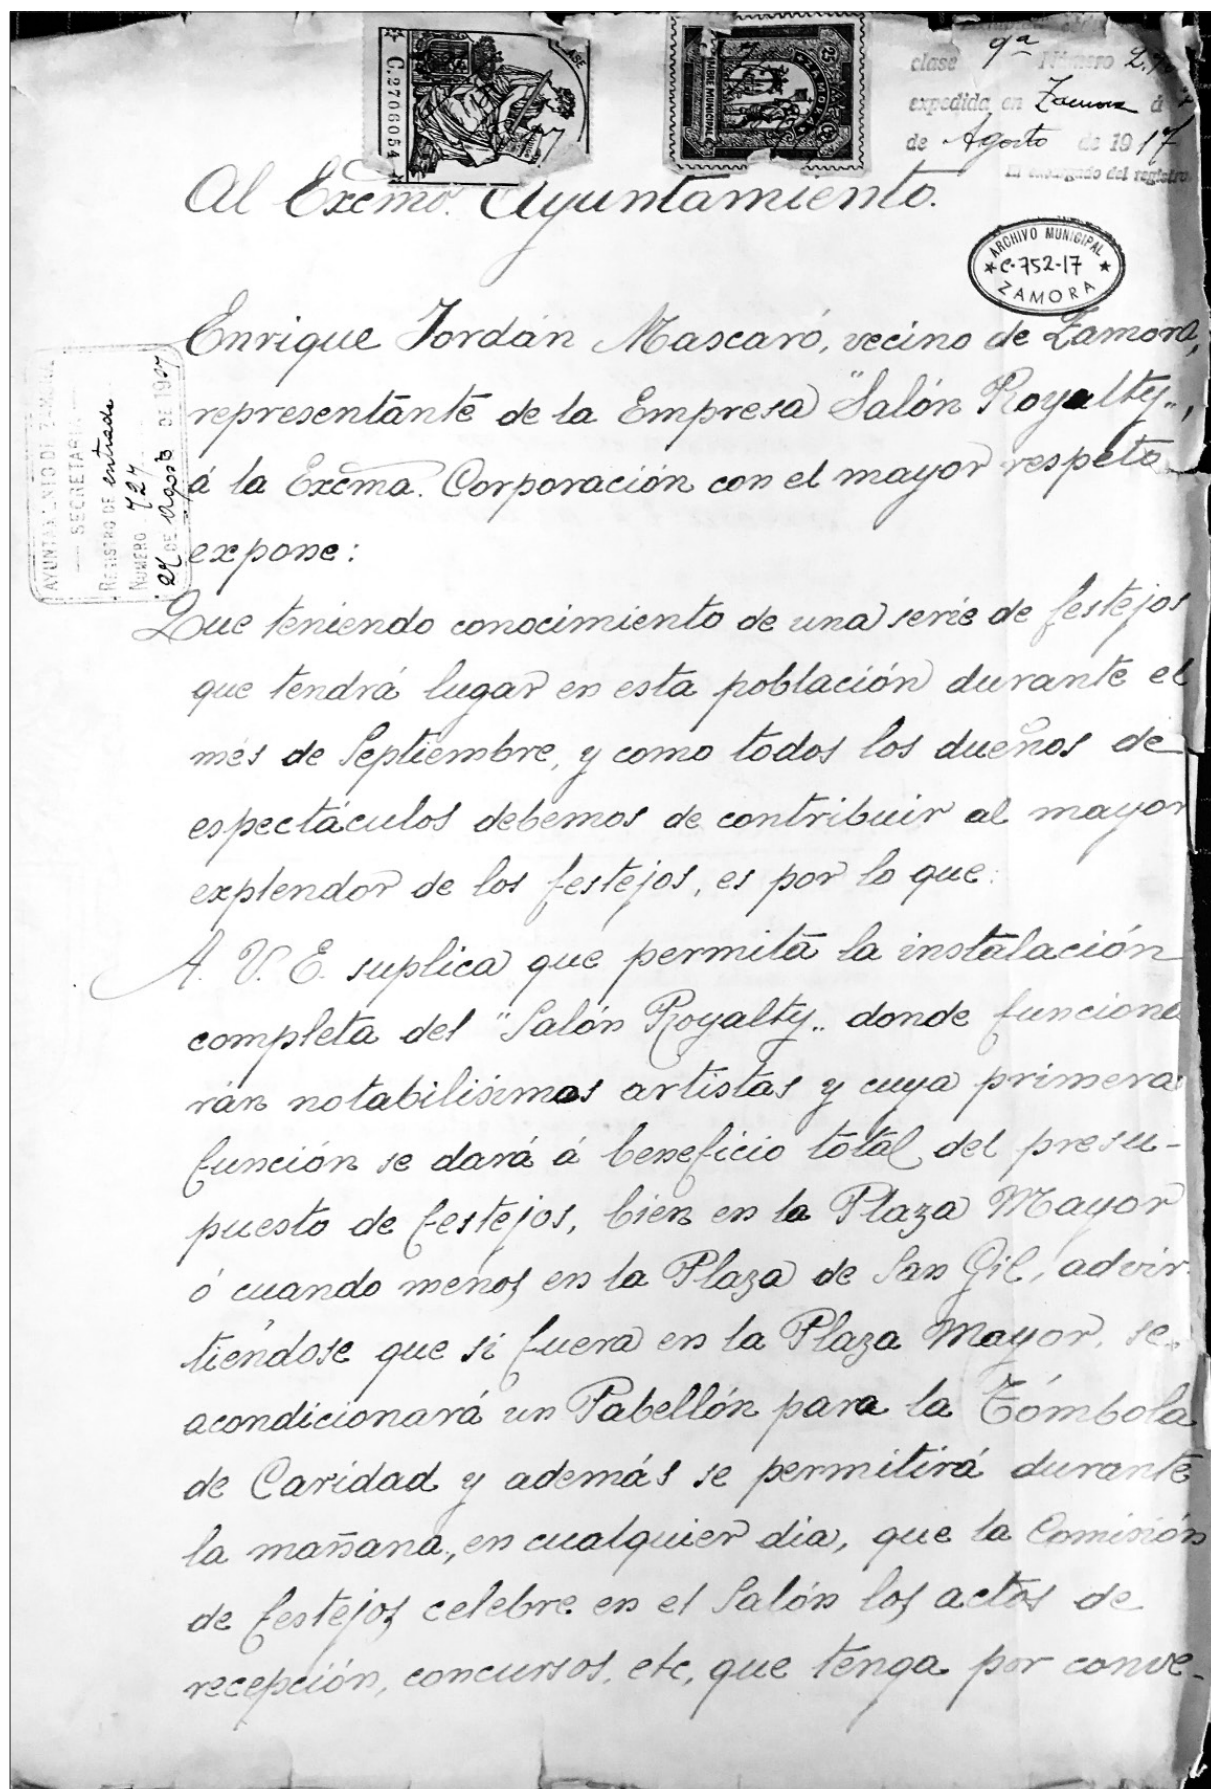 C.2706054
CLASE
TIMBRE MUNICIPAL
ZAMORA
25
clase 9ª Número
expedida en Zamora á
de Agosto de 1917
El encargado del registro
Al Excmo. Ayuntamiento.
ARCHIVO MUNICIPAL
C-752-17
ZAMORA
AYUNTAMIENTO DE ZAMORA
SECRETARIA
REGISTRO DE entrada
NUMERO 727
27 DE agosto DE 19
Enrique Jordán Mascaró, vecino de Zamora,
representante de la Empresa "Salón Royalty",
á la Excma. Corporación con el mayor respeto
expone:
Que teniendo conocimiento de una serie de festejos
que tendrá lugar en esta población durante el
més de Septiembre, y como todos los dueños de
espectáculos debemos de contribuir al mayor
explendor de los festejos, es por lo que:
A. V. E. suplica que permita la instalación
completa del "Salón Royalty" donde funciona
rán notabilisimos artistas y cuya primera
función se dará á beneficio total del presu-
puesto de festejos, bien en la Plaza Mayor
ó cuando menos en la Plaza de San Gil, advir-
tiéndose que si fuera en la Plaza Mayor, se
acondicionará un Pabellón para la Tómbola
de Caridad y además se permitirá durante
la mañana, en cualquier dia, que la Comisión
de festejos celebre en el Salón los actos de
recepción, concursos, etc, que tenga por conve-